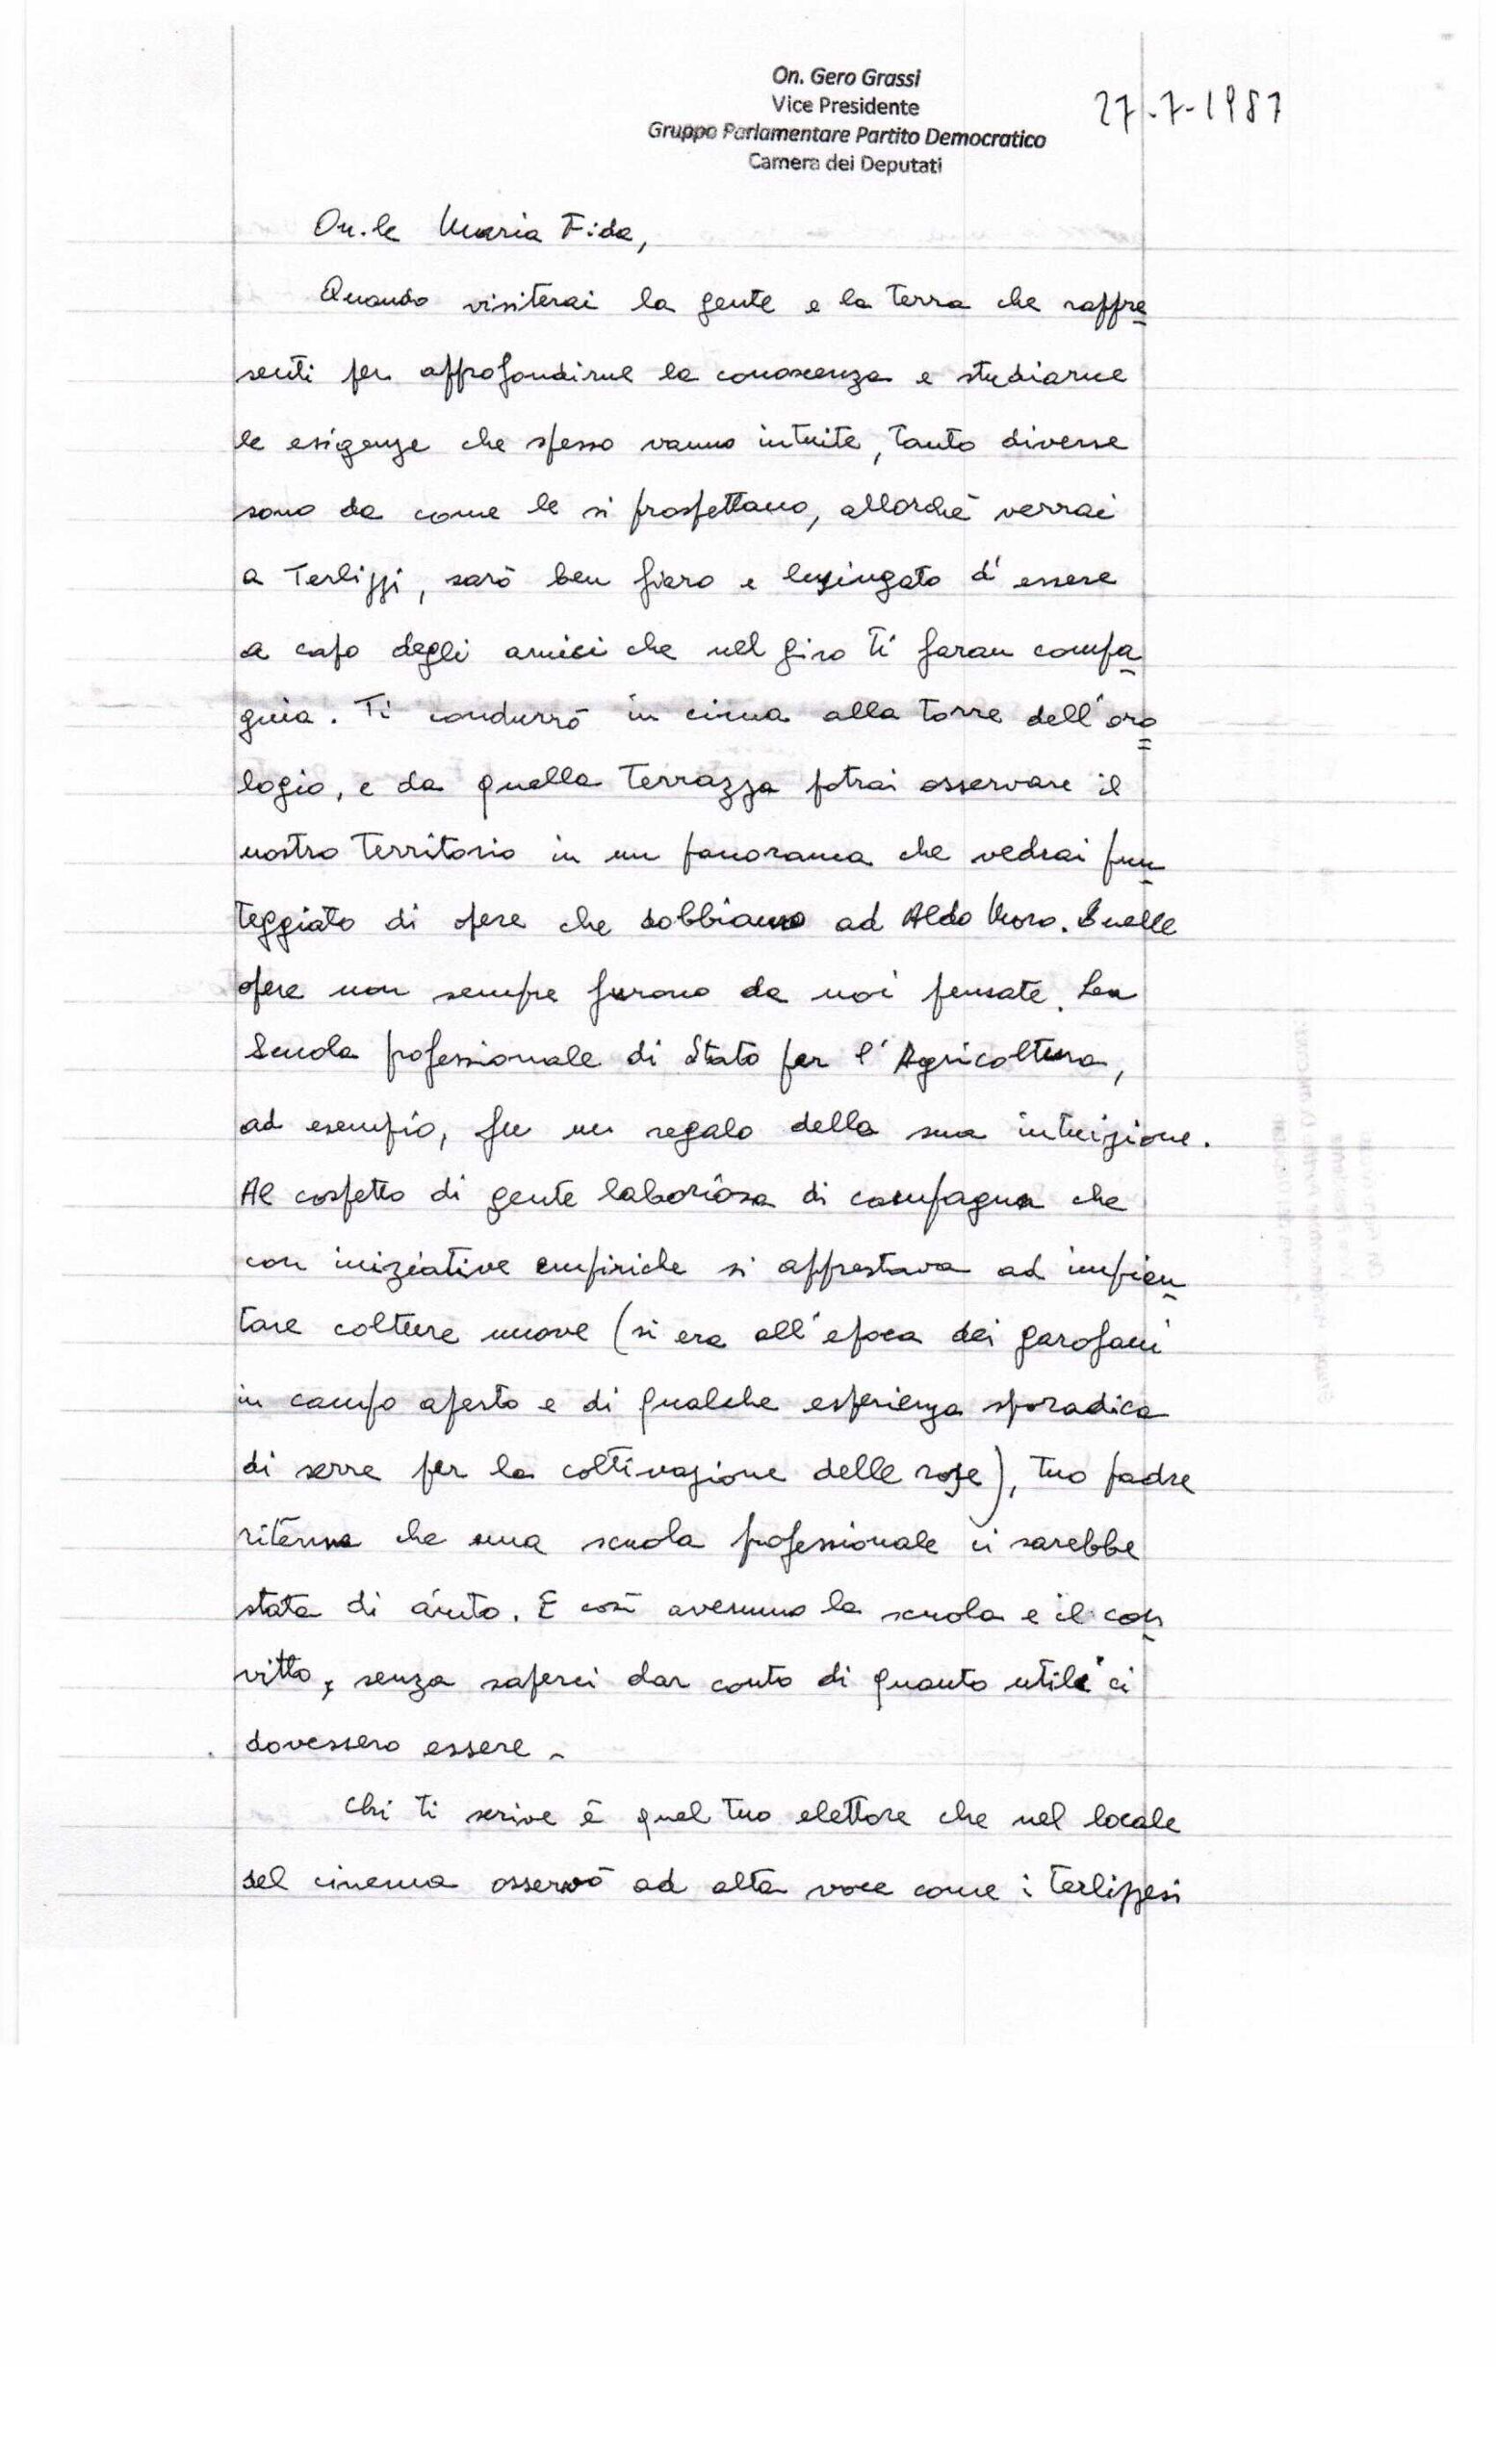 On. Gero Grassi
Vice Presidente
Gruppo Parlamentare Partito Democratico
Camera dei Deputati
27-7-1987
On.le Maria Fida,
Quando visiterai la gente e la terra che rappre
senti per approfondirne la conoscenza e studiarne
le esigenze che spesso vanno intuite, tanto diverse
sono da come le si prospettano, allorchè verrai
a Terlizzi, sarò ben fiero e lusingato d'essere
a capo degli amici che nel giro ti faran compa
gnia. Ti condurrò in cima alla torre dell'oro
logio, e da quella terrazza potrai osservare il
nostro territorio in un panorama che vedrai pun
teggiato di opere che dobbiamo ad Aldo Moro. Quelle
opere non sempre furono da noi pensate. La
Scuola professionale di Stato per l'Agricoltura,
ad esempio, fu un regalo della sua intuizione.
Al cospetto di gente laboriosa di campagna che
con iniziative empiriche si apprestava ad impian
tare colture nuove (si era all'epoca dei garofani
in campo aperto e di qualche esperienza sporadica
di serre per la coltivazione delle rose), tuo padre
ritenne che una scuola professionale ci sarebbe
stata di aiuto. E così avemmo la scuola e il con
vitto, senza saperci dar conto di quanto utili ci
dovessero essere.
Chi ti scrive è quel tuo elettore che nel locale
del cinema osservò ad alta voce come i terlizzesi